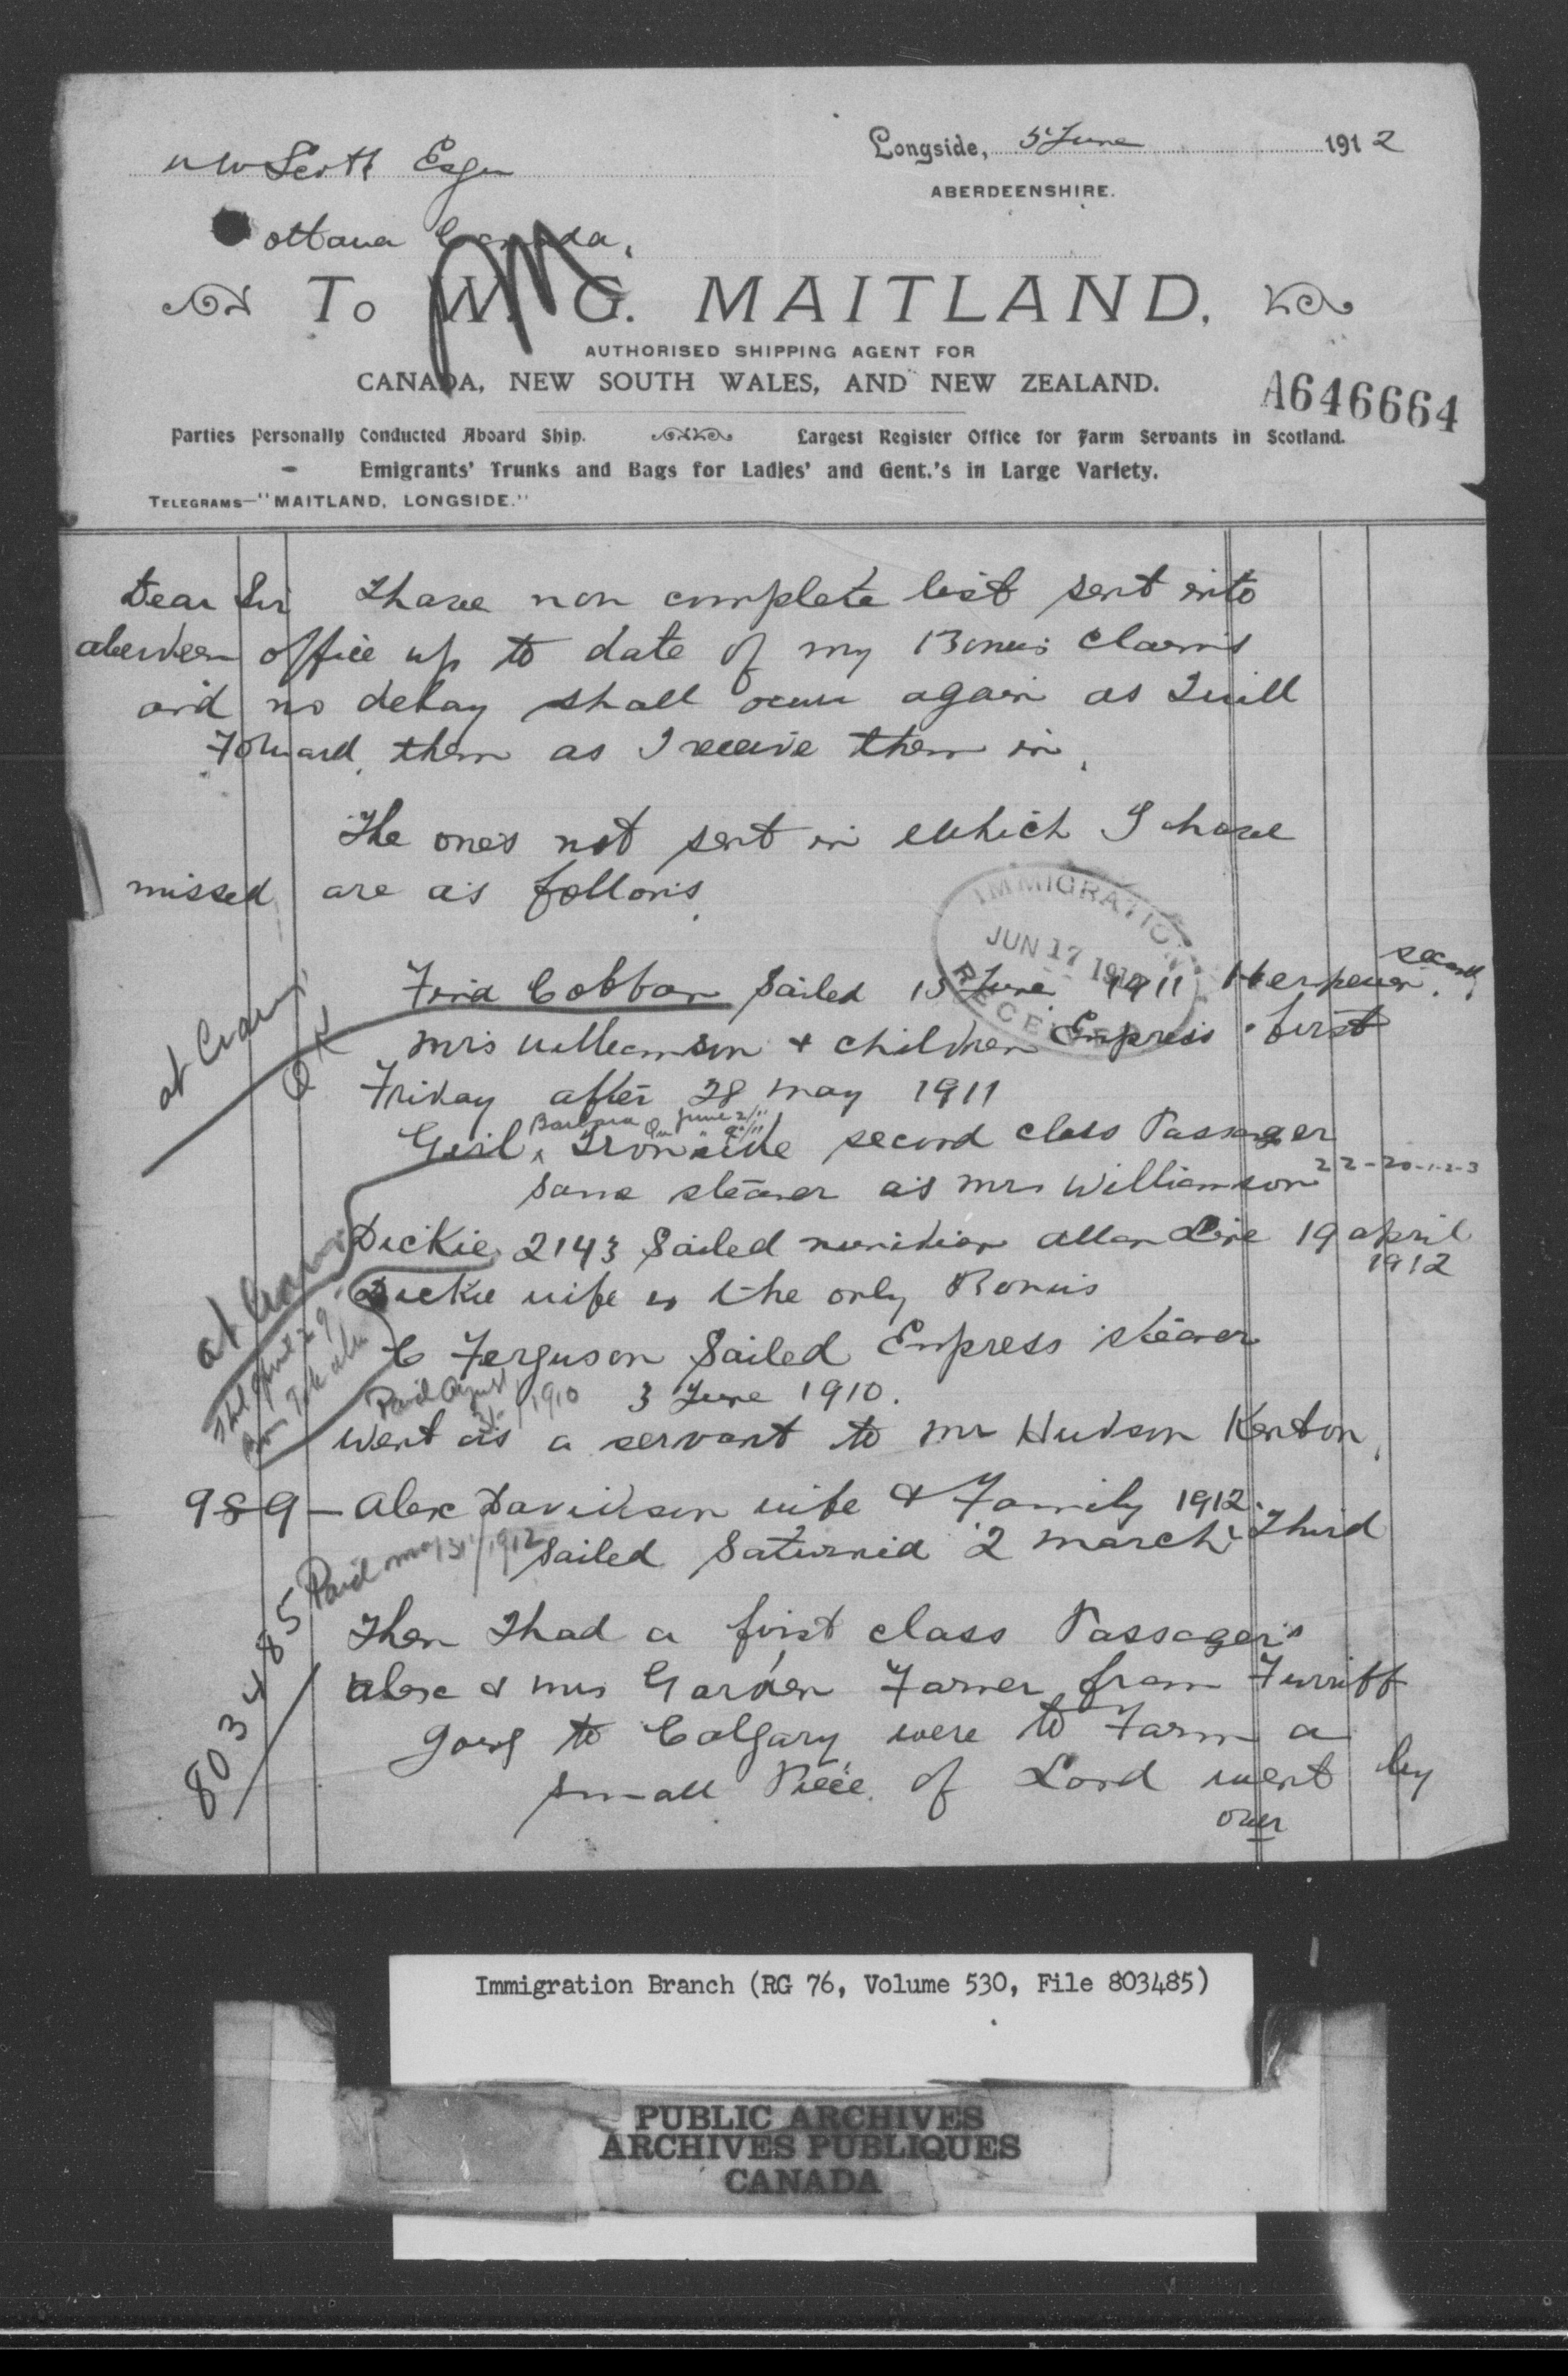 Longside, 5 June 1912
ABERDEENSHIRE.
W W Scott Esqr
ottawa Canada,
To W. G. MAITLAND,
AUTHORISED SHIPPING AGENT FOR
CANADA, NEW SOUTH WALES, AND NEW ZEALAND.
A646664
Parties Personally Conducted Aboard Ship. Largest Register Office for Farm Servants in Scotland.
Emigrants' Trunks and Bags for Ladies' and Gent.'s in Large Variety.
TELEGRAMS—"MAITLAND, LONGSIDE."
Dear Sir I have now complete list sent into
aberdeen office up to date of my Bonus claims
and no delay shall occur again as I will
Forward them as I receive them in,
The ones not sent in which I have
missed are as follows
IMMIGRATION
JUN 17 1912
RECEIVED
Cobban Sailed 15 June 1911 second
Mrs Williamson & children Empress first
Friday after 28 may 1911
Barbara June 2/11
Girl Ironside second class Passager
22-20-1-2-3
same steamer as mrs Williamson
Dickie 2143 Sailed numidian allan Line 19 april
1912
Dickie wife is the only Bonus
C Ferguson Sailed Empress steamer
Paid August 31/1910 3 June 1910.
went as a servant to mr Hudson Kenton,
989 — alex Davidson wife & Family 1912
Paid may 31/1912 Sailed Saturnia 2 march Third
Then I had a first class Passager's
alex & mrs Garden Farmer from Turriff
going to Calgary were to Farm a
small Piece of Land went by
over
803485
Immigration Branch (RG 76, Volume 530, File 803485)
PUBLIC ARCHIVES
ARCHIVES PUBLIQUES
CANADA